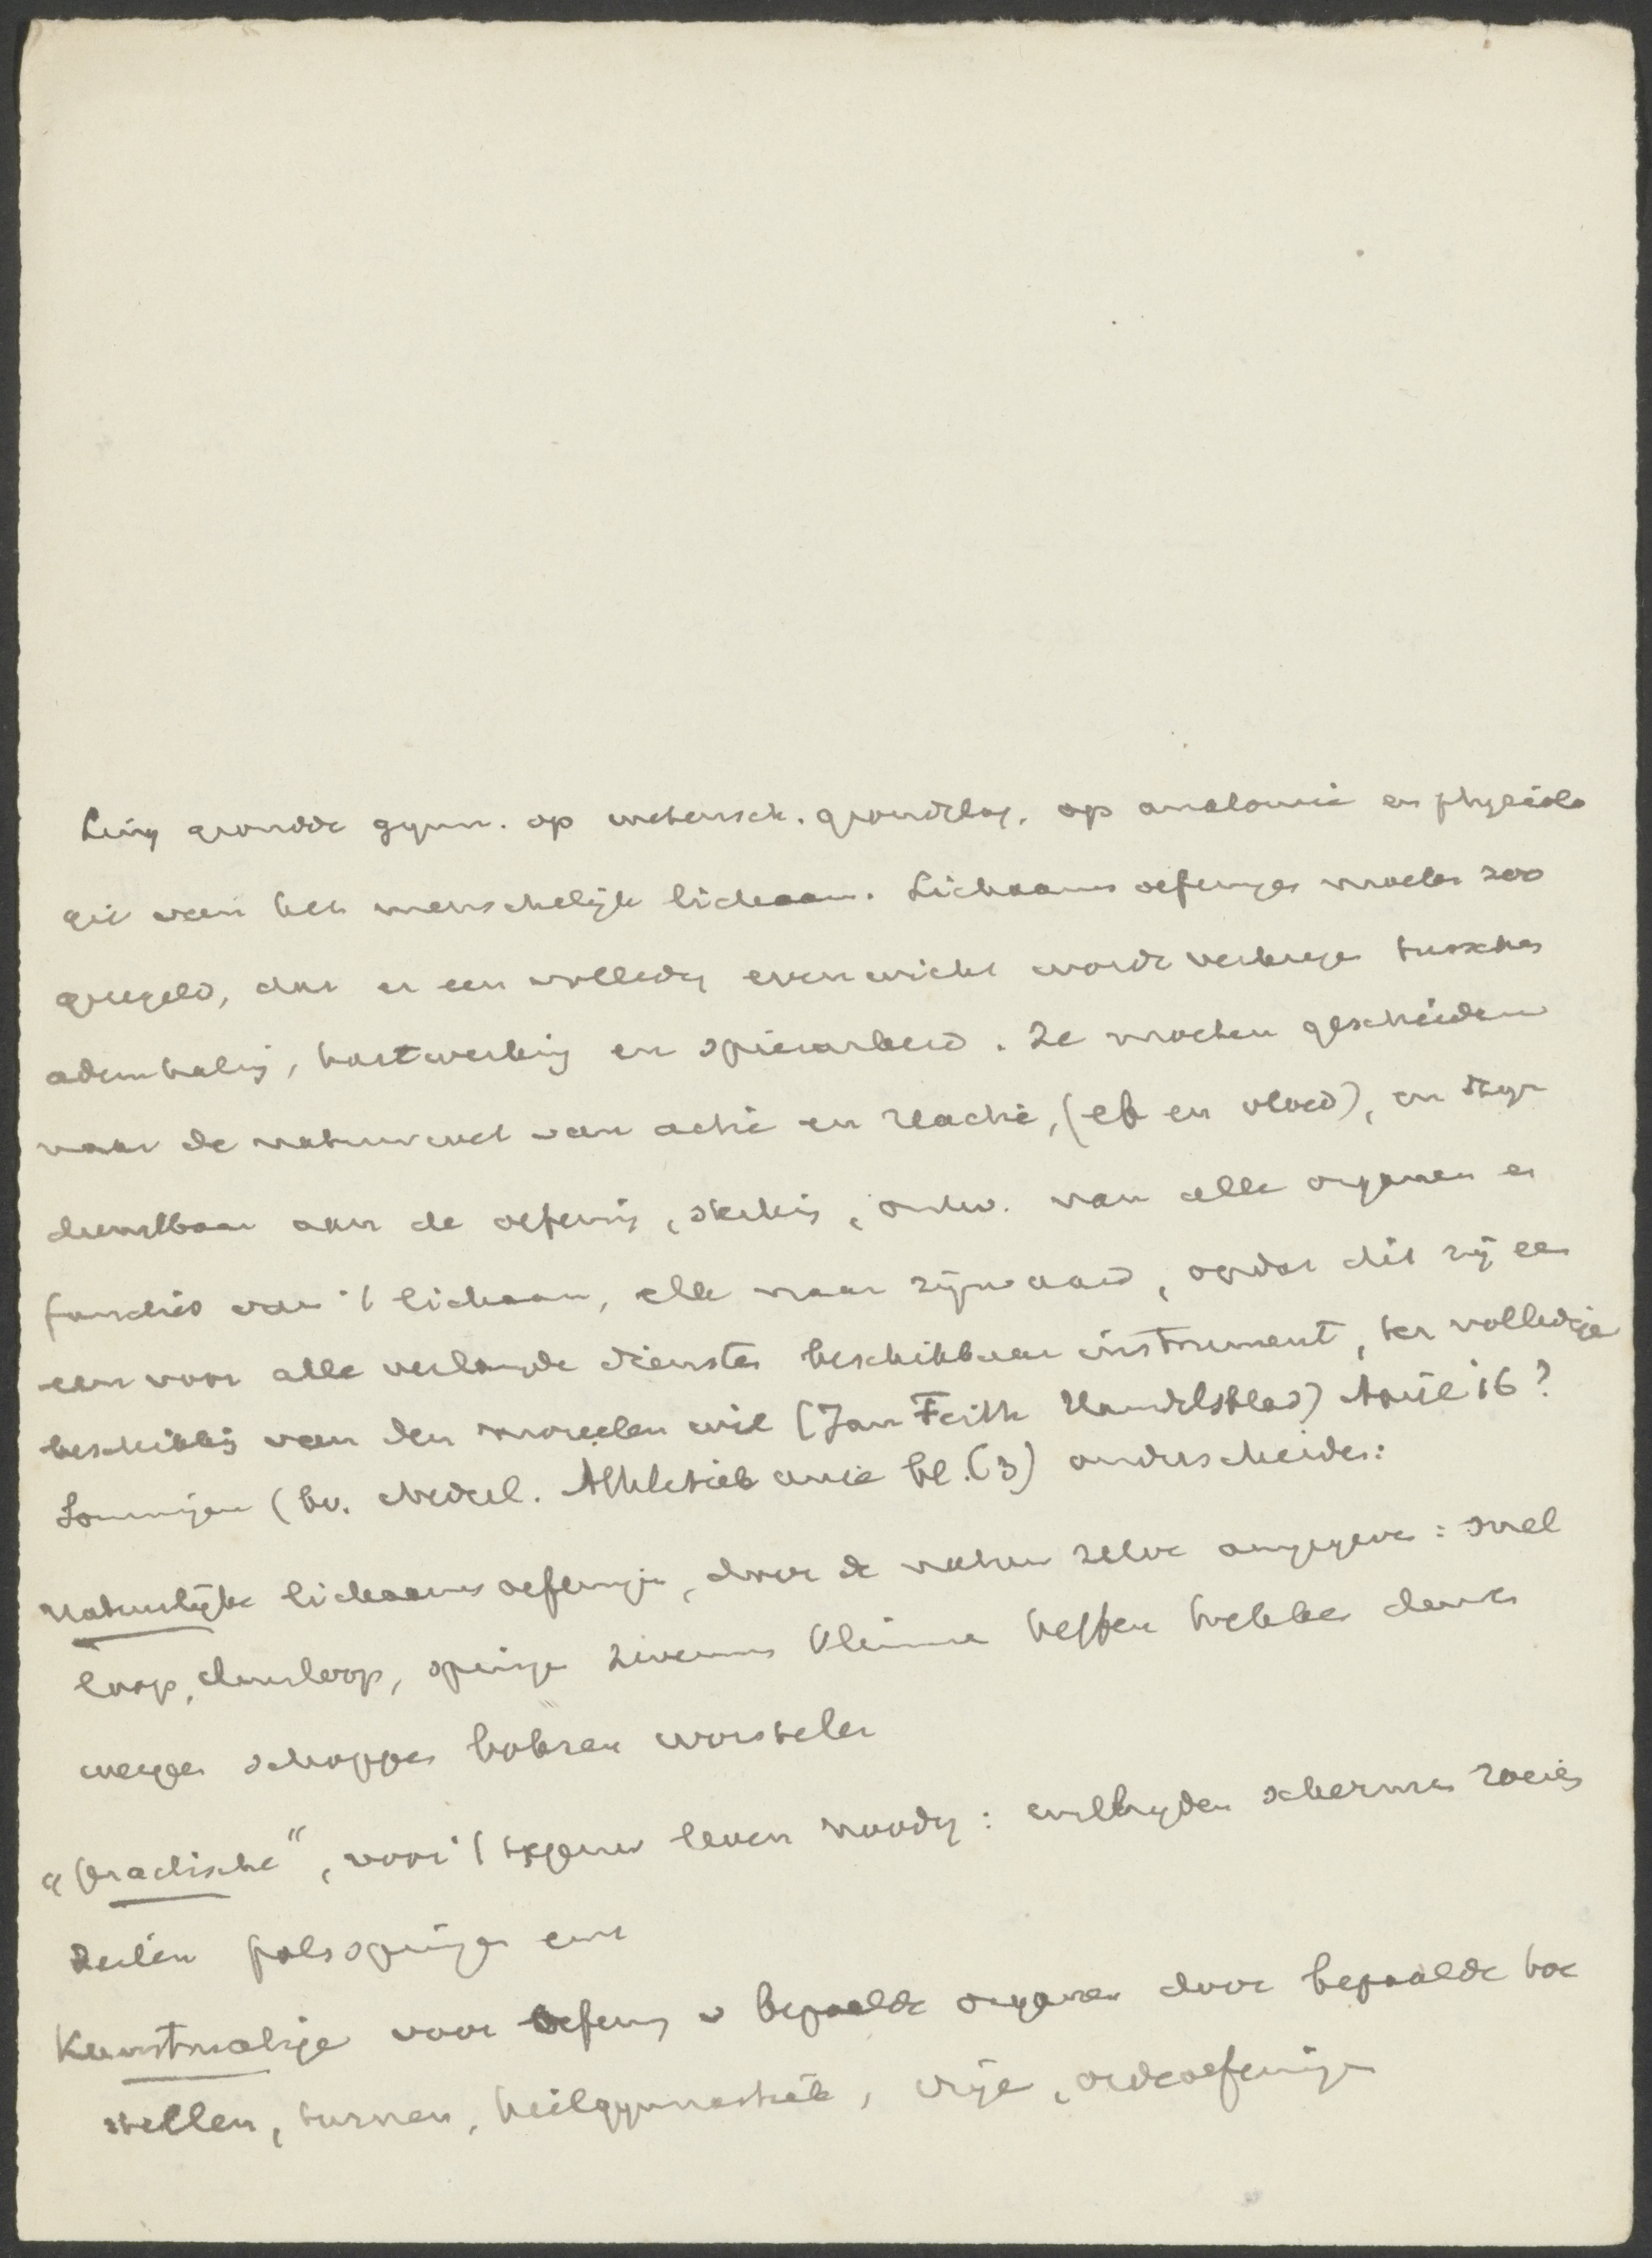 Ling grondde gymn. op wetensch. grondslag, op anatomie en physiolo
gie van het menschelijk lichaam. Lichaamsoefeningen moeten zoo
geregeld, dat er een volledig evenwicht worde verkregen tusschen
ademhaling, hartwerking en spierarbeid. Ze moeten geschieden
naar de natuurwet van actie en reactie, (eb en vloed), en zijn
dienstbaar aan de oefening, sterking, ontw. van alle organen en
functies van 't lichaam, elk naar zijn aard, opdat dit zij een
een voor alle verlangde diensten beschikbaar instrument, ter volledige
beschikking van den moreelen wil (Jan Feith Handelsblad) April '16?
Sommigen (bv. Nederl. Athletiek unie bl. (3) onderscheiden:
Natuurlijke lichaamsoefeningen, door de natuur zelve aangegeven: snel
loop, duurloop, springen zwemmen klimmen heffen trekken dansen
werpen schoppen boksen worstelen
"Practische", voor 't tegenw leven noodig: wielrijden schermen roeien
zeilen polsspringen enz
Kunstmatige voor oefening v bepaalde organen door bepaalde toe
stellen, turnen, heilgymnastiek, vrije, ordeoefeningen